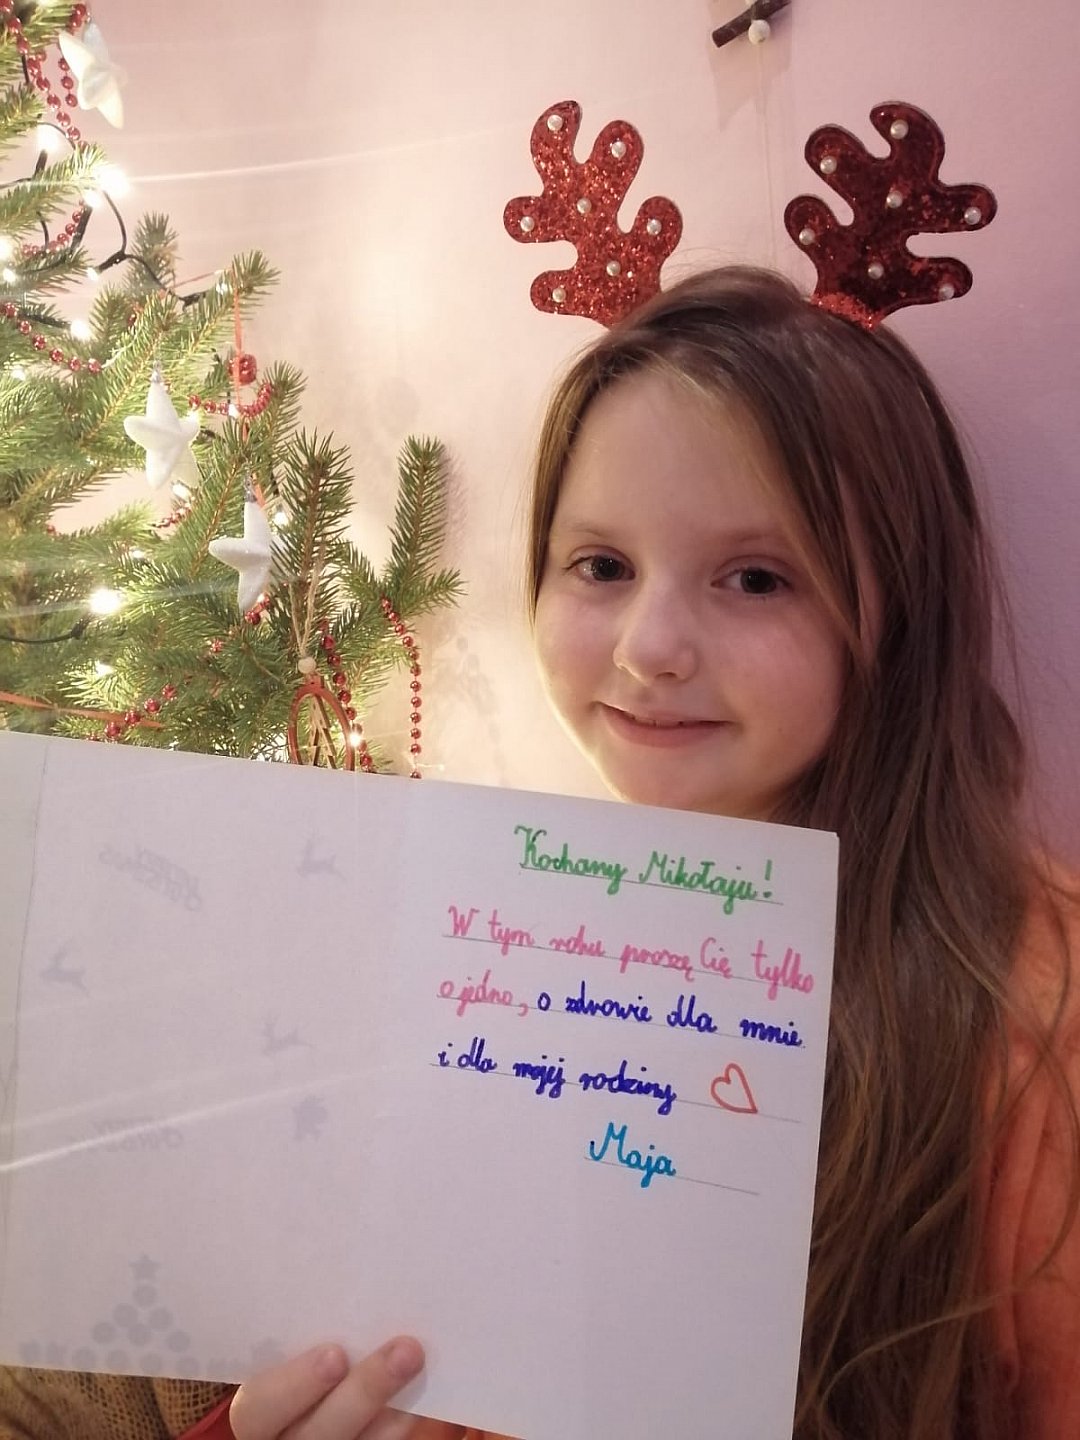 Kochany Mikołaju!
W tym roku proszę Cię tylko
o jedno, o zdrowie dla mnie
i dla mojej rodziny
Maja